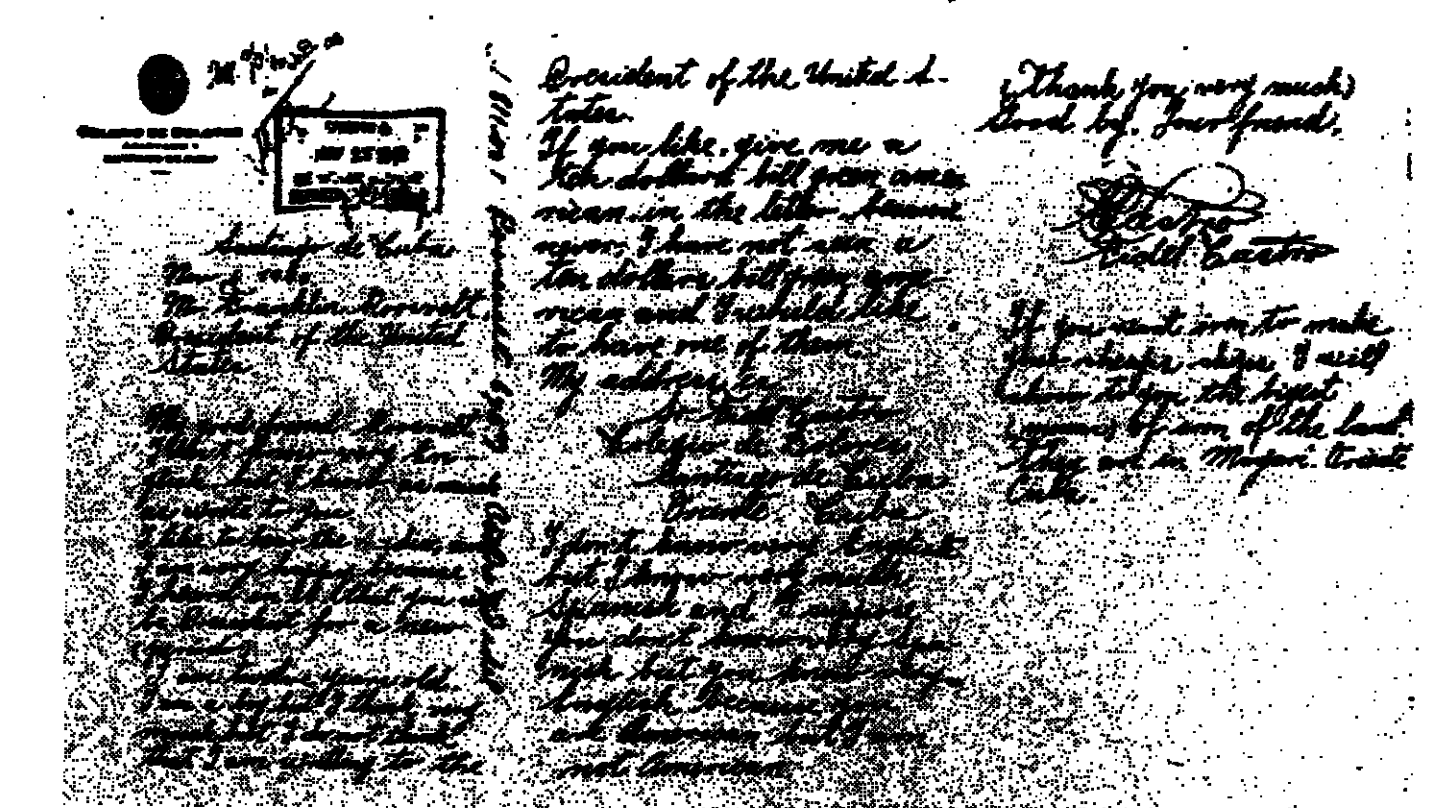 COLEGIO DE DOLORES
Santiago de Cuba
Nov 6 1940.
Mr Franklin Roosevelt,
President of the United
States.
My good friend Roosevelt
I don't know very En-
glish, but I know as much
as write to you.
I like to hear the radio, and
I am very happy, because
I heard in it, that you will
be President for a new
(periodo)
I am twelve years old.
I am a boy but I think very
much but I do not think
that I am writting to the
President of the United S-
tates.
If you like, give me a
ten dollars bill green amer-
ican, in the letter, because
never, I have not seen a
ten dollars bill green amer-
ican and I would like
to have one of them.
My address is:
Sr Fidel Castro
Colegio de Dolores
Santiago de Cuba
Oriente Cuba
I don't know very English
but I know very much
Spanish and I suppose
you don't know very Spa-
nish but you know very
English because you
are American but I am
not American
(Thank you very much)
Good by. Your friend,
Castro
Fidel Castro
If you want iron to make
your ships I will
show to you the bigest
(minas) of iron of the land.
They are in Mayari. Oriente
Cuba.